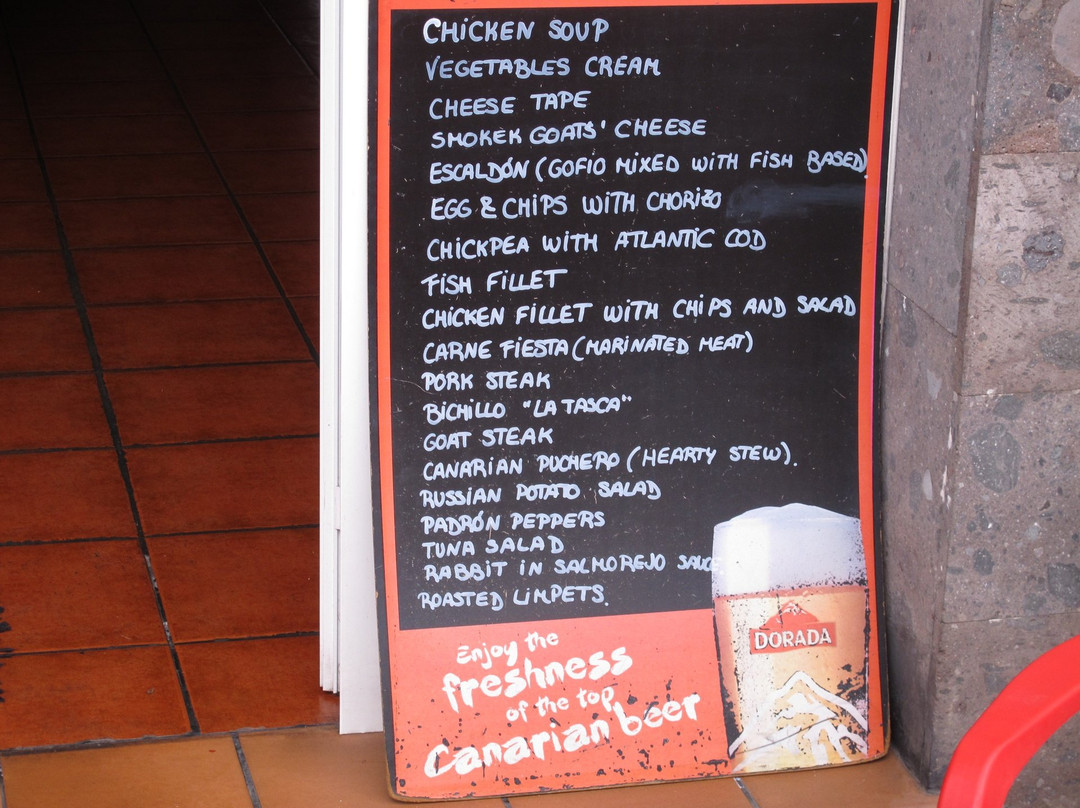 CHICKEN SOUP
VEGETABLES CREAM
CHEESE TAPE
SMOKEK GOATS' CHEESE
ESCALDÓN (GOFIO MIXED WITH FISH BASED)
EGG & CHIPS WITH CHORIZO
CHICKPEA WITH ATLANTIC COD
FISH FILLET
CHICKEN FILLET WITH CHIPS AND SALAD
CARNE FIESTA (MARINATED MEAT)
PORK STEAK
BICHILLO "LA TASCA"
GOAT STEAK
CANARIAN PUCHERO (HEARTY STEW).
RUSSIAN POTATO SALAD
PADRÓN PEPPERS
TUNA SALAD
RABBIT IN SALMOREJO SAUCE
ROASTED LIMPETS.
DORADA
Enjoy the
freshness
of the top
Canarian beer